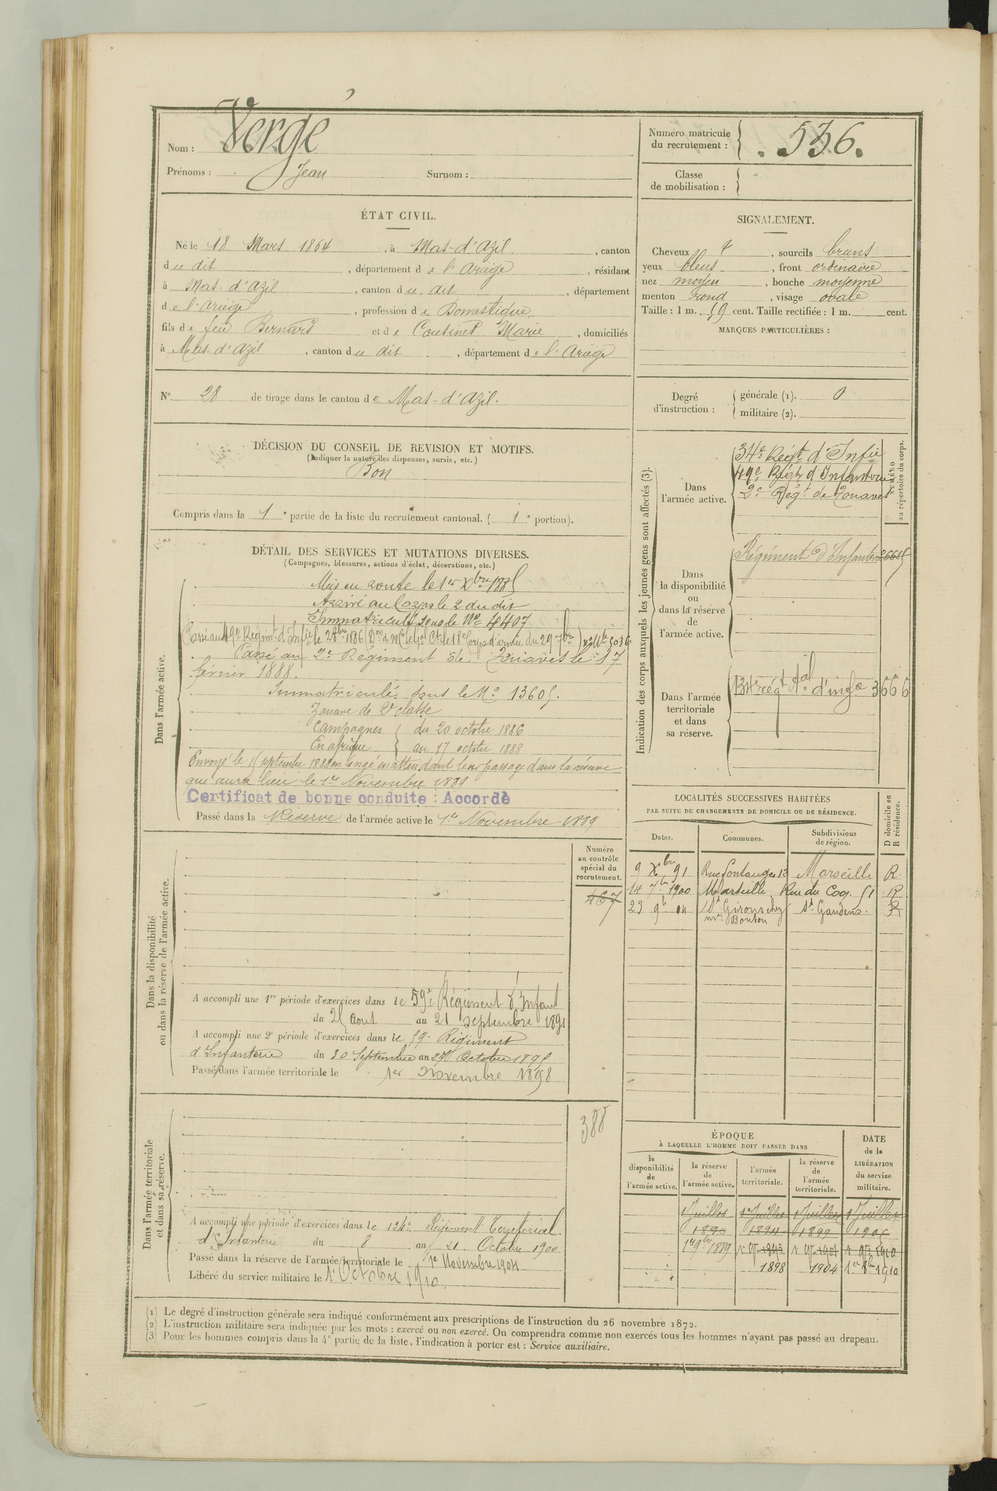 Nom : Vergé
Prénoms : Jean Surnom :
Numéro matricule du recrutement : 536.
Classe de mobilisation :
ÉTAT CIVIL.
Né le 18 Mars 1864, à Mas-d'Azil, canton
du dit, département de l'Ariège, résidant
à Mas d'Azil, canton du dit, département
de l'Ariège, profession de Domestique
fils de feu Bernard et de Coutinet Marie, domiciliés
à Mas d'Azil, canton du dit, département de l'Ariège
N° 28 de tirage dans le canton de Mas-d'Azil.
SIGNALEMENT.
Cheveux, sourcils bruns
yeux bleus, front ordinaire
nez moyen, bouche moyenne
menton rond, visage ovale
Taille : 1 m. 59 cent. Taille rectifiée : 1 m. cent.
MARQUES PARTICULIÈRES :
Degré d'instruction : générale (1). 0
militaire (2).
DÉCISION DU CONSEIL DE REVISION ET MOTIFS.
(Indiquer la nature des dispenses, sursis, etc.)
Bon
Compris dans la 1e partie de la liste du recrutement cantonal. (1e portion).
DÉTAIL DES SERVICES ET MUTATIONS DIVERSES.
(Campagnes, blessures, actions d'éclat, décorations, etc.)
Dans l'armée active.
Mis en route le 1er Xbre 1885
Arrivé au Corps le 2 du dit
Immatriculé sous le No 4407
Passé au 2e Régiment de Zouaves le 17
février 1888.
Immatriculé sous le No 13605.
Zouave de 2e classe
Campagnes du 20 octobre 1886
En afrique au 17 octobre 1888
qui aura lieu le 1er Novembre 1889
Certificat de bonne conduite : Accordé
Passé dans la Réserve de l'armée active le 1er Novembre 1889
Indication des corps auxquels les jeunes gens sont affectés (3).
NUMÉRO au répertoire du corps.
Dans l'armée active.
34e Régt d'Infie
49e Régt d'Infanterie
2e Régt de Zouaves
Dans la disponibilité ou dans la réserve de l'armée active.
Régiment d'Infanterie
Dans l'armée territoriale et dans sa réserve.
134e régt tal d'infie 3666
LOCALITÉS SUCCESSIVES HABITÉES
PAR SUITE DE CHANGEMENTS DE DOMICILE OU DE RÉSIDENCE.
D domicile ou R résidence.
Dates. Communes. Subdivisions de région.
9 Xbre 91 Rue Fontanges 13 Marseille R
14 7bre 1900 Marseille Rue du Coq 51 R
23 9bre 04 St Gaudens. R
Dans la disponibilité ou dans la réserve de l'armée active.
Numéro au contrôle spécial du recrutement.
467
A accompli une 1re période d'exercices dans le 59e Régiment d'Infant
du 25 aout au 21 septembre 1891
A accompli une 2e période d'exercices dans le 59e Régiment
d'Infanterie du 30 Septembre au 27 Octobre 1895
Passé dans l'armée territoriale le 1er Novembre 1898
Dans l'armée territoriale et dans sa réserve.
388
A accompli une période d'exercices dans le 134e Régiment Territorial
d'Infanterie du 8 au 21 Octobre 1900
Passé dans la réserve de l'armée territoriale le 1er Novembre 1904
Libéré du service militaire le 1er Octobre 1910
ÉPOQUE
À LAQUELLE L'HOMME DOIT PASSER DANS
DATE de la LIBÉRATION du service militaire.
la disponibilité de l'armée active. la réserve de l'armée active. l'armée territoriale. la réserve de l'armée territoriale.
1 Juillet 1er Juillet 1 Juillet 1 Juillet
1890 1894 1899 1905
1898 1904 1er 8bre 1910
(1) Le degré d'instruction générale sera indiqué conformément aux prescriptions de l'instruction du 26 novembre 1872.
(2) L'instruction militaire sera indiquée par les mots : exercé ou non exercé. On comprendra comme non exercés tous les hommes n'ayant pas passé au drapeau.
(3) Pour les hommes compris dans la 4e partie de la liste, l'indication à porter est : Service auxiliaire.